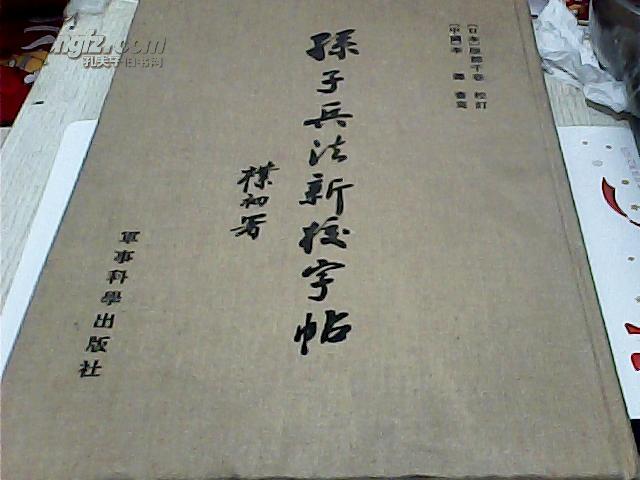 [日本]服部千春 校訂
[中國]李 書寫
孫子兵法新校字帖
樸初署
軍事科學出版社
孔夫子旧书网